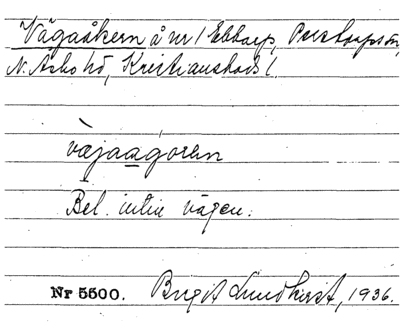 Vägaåkern å nr 1 Ebbarp, Perstorps sn,
N. Åsbo hd, Kristianstads l.
væjaagoren
Bel. intill vägen.
Nr 5500. Birgit Lundkvist, 1936.